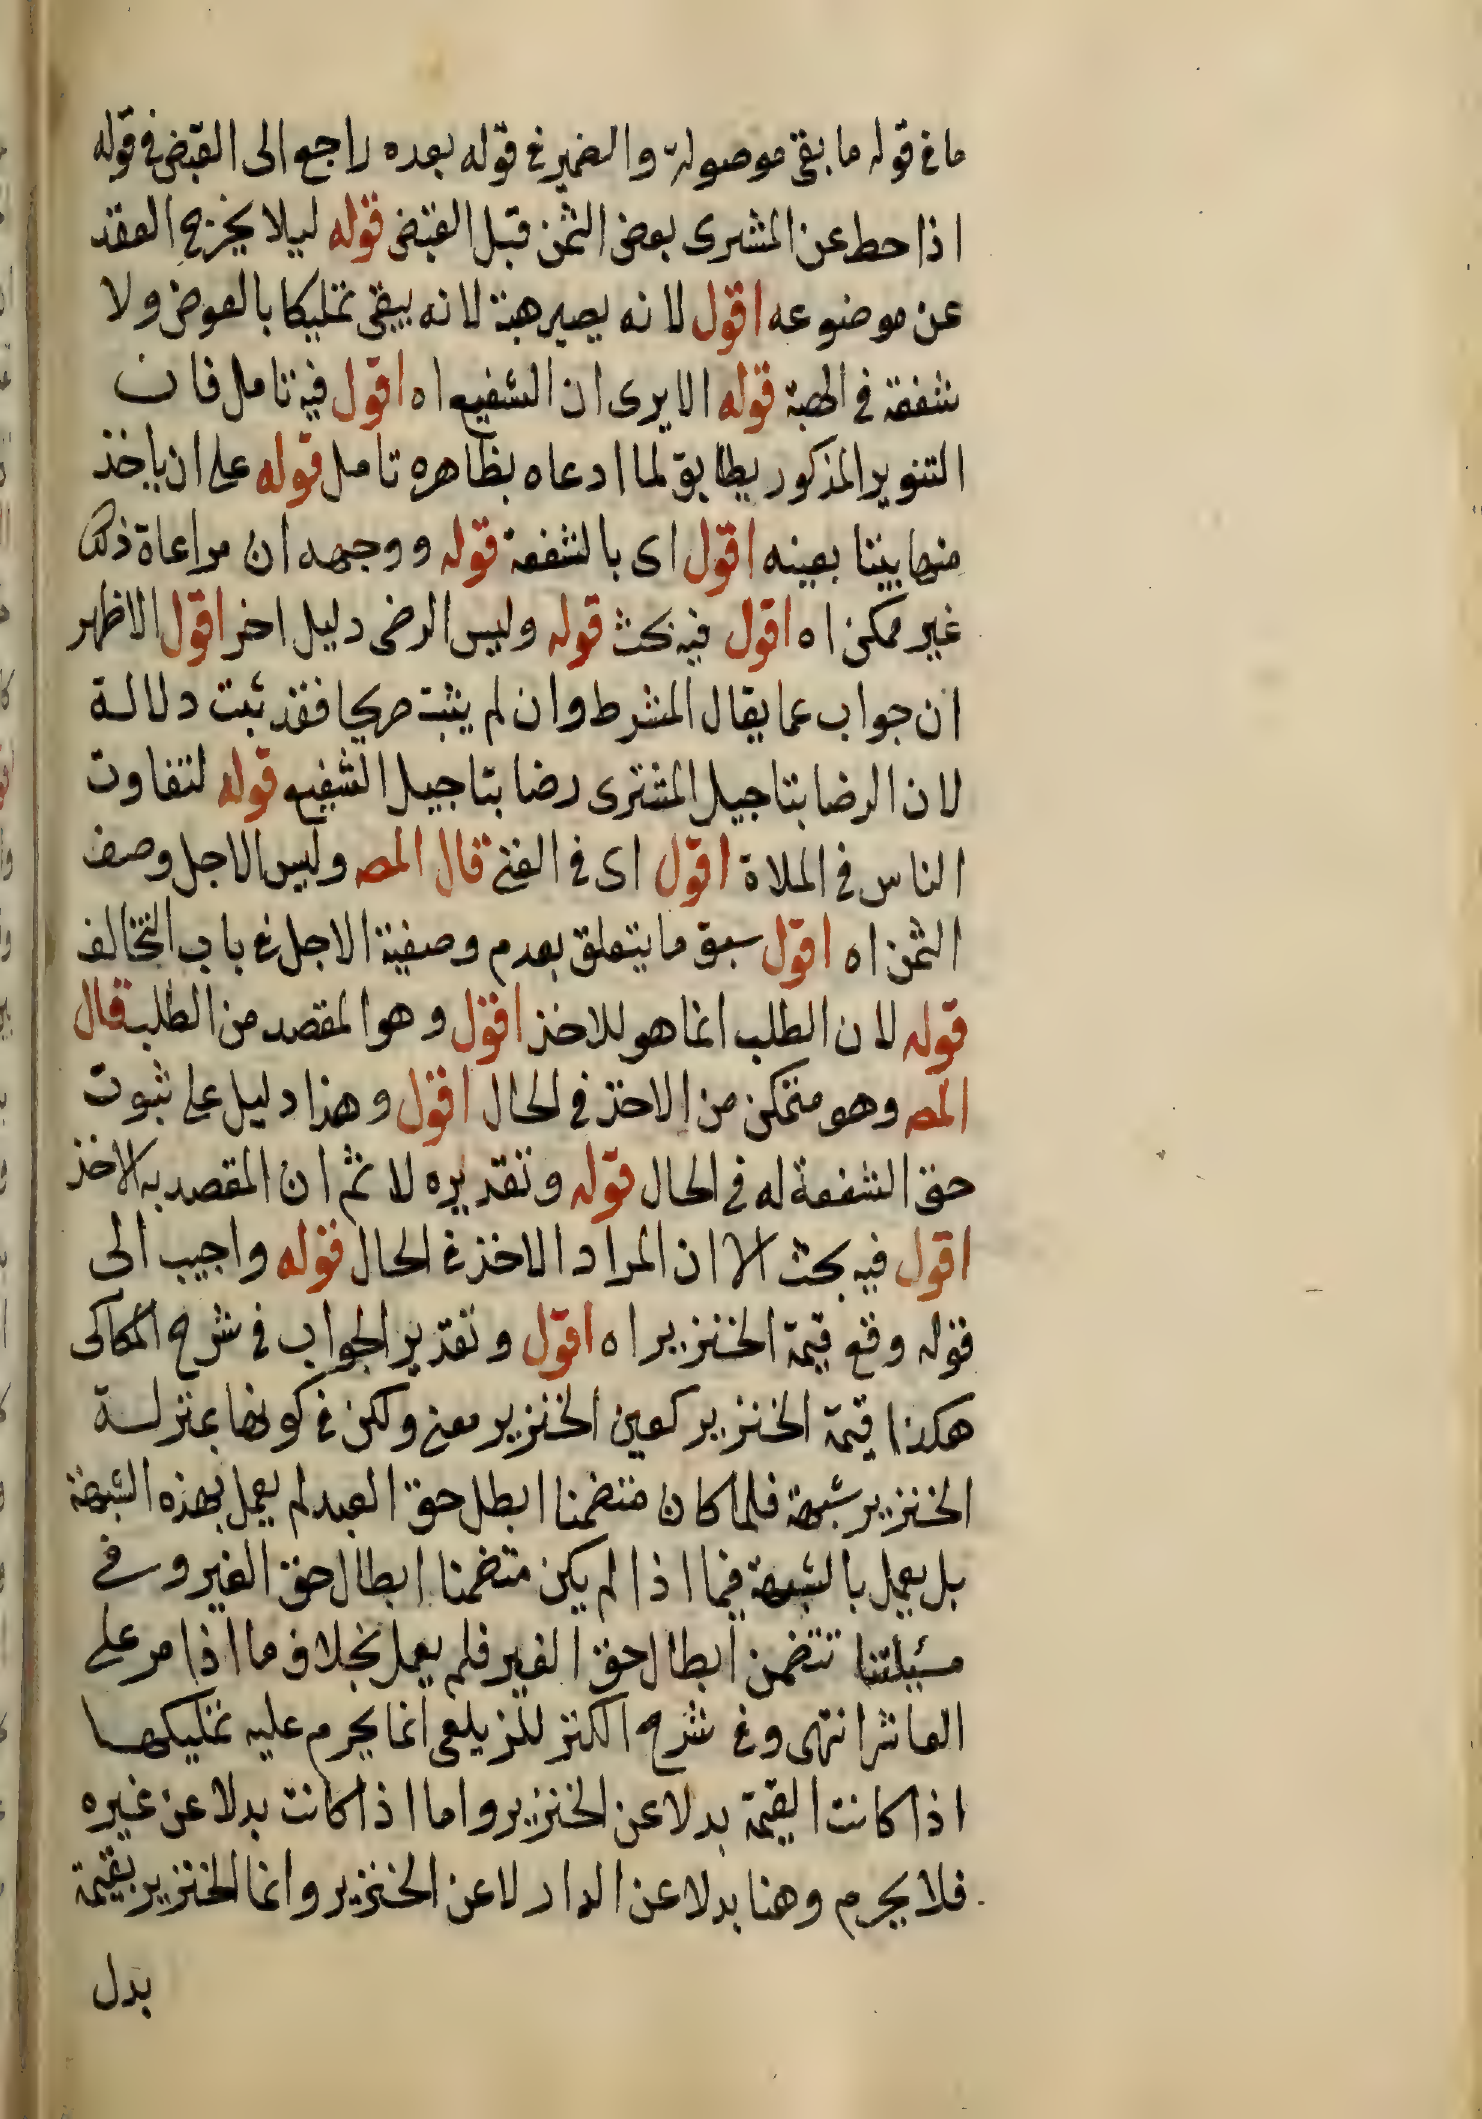 ما في قوله ما بقي موصولة والضمير في قوله بعده راجع الى القبض في قوله
اذا حط عن المشترى بعض الثمن قبل القبض قوله ليلا يخرج العقد
عن موضوعه اقول لانه يصير هبة لانه يبقى تمليكا بالعوض ولا
شفعة في الهبة قوله الا يرى ان الشفيع اه اقول فيه تامل فان
التنوير المذكور يطابق لما ادعاه بظاهره تامل قوله على ان ياخذ
منها بيتا بعينه اقول اى بالشفعة قوله ووجهه ان مراعاة ذلك
غير ممكن اه اقول فيه بحث قوله وليس الرضى دليل اخر اقول الاظهر
ان جواب عما يقال الشرط وان لم يثبت صريحا فقد ثبت دلالة
لان الرضا بتاجيل المشترى رضا بتاجيل الشفيع قوله لتفاوت
الناس في الملاة اقول اى في الغنى قال المصـ وليس الاجل وصف
الثمن اه اقول سبق ما يتعلق بعدم وصفية الاجل في باب التخالف
قوله لان الطلب انما هو للاخذ اقول وهو المقصد من الطلب قال
المصـ وهو متمكن من الاخذ في الحال اقول وهذا دليل على ثبوت
حق الشفعة له في الحال قوله وتقديره لا نم ان المقصد به الاخذ
اقول فيه بحث الا ان المراد الاخذ في الحال قوله واجيب الى
قوله وقع قيمة الخنزير اه اقول وتقدير الجواب في شرح الكاكى
هكذا قيمة الخنزير كعين الخنزير معنى ولكن في كونها بمنزلة
الخنزير شبهة فلما كان متضمنا ابطل حق العبد لم يعمل بهذه الشبهة
بل يعمل بالشبهة فيما اذا لم يكن متضمنا ابطال حق الغير وفي
مسئلتنا تتضمن ابطال حق الغير فلم يعمل بخلاف ما اذا مر على
العاشر انتهى وفي شرح الكنز للزيلعى انما يحرم عليه تمليكها
اذا كانت القيمة بدلا عن الخنزير واما اذا كانت بدلا عن غيره
فلا يحرم وهنا بدلا عن الدار لا عن الخنزير وانما الخنزير بقيمة
بدل